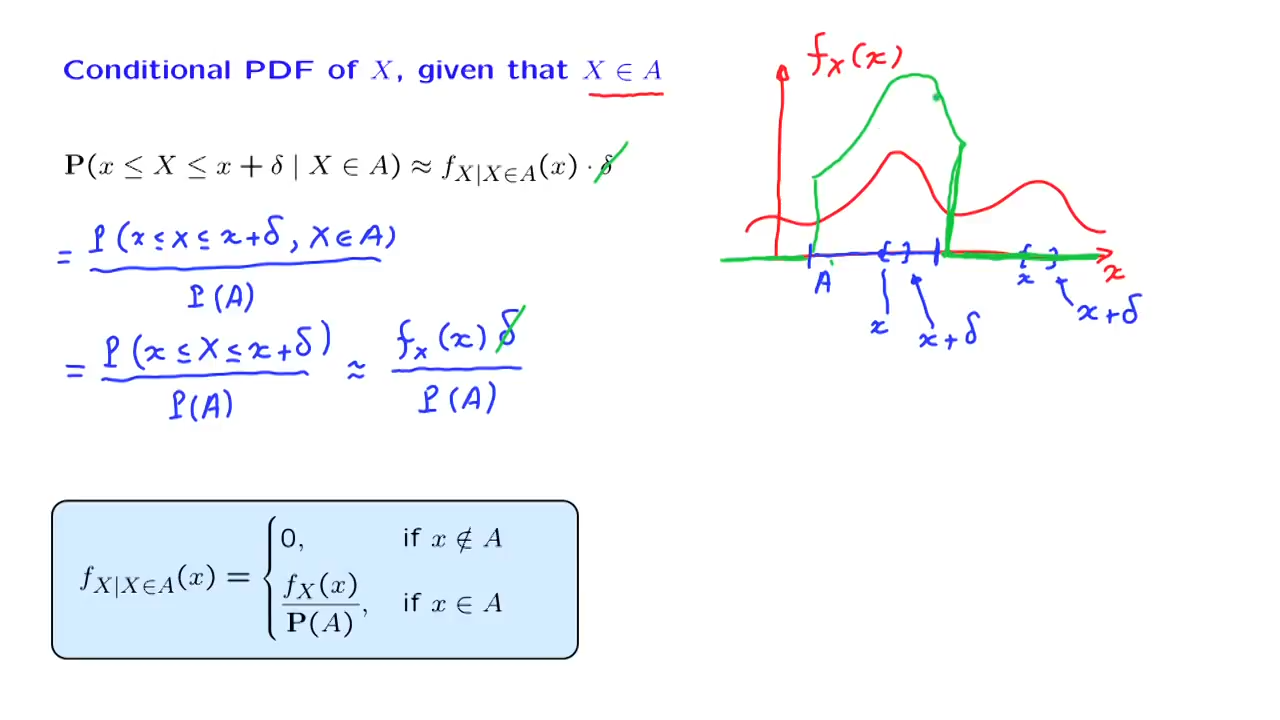 Conditional PDF of X, given that X ∈ A
P(x ≤ X ≤ x + δ | X ∈ A) ≈ f_{X|X∈A}(x) · δ
= P(x ≤ X ≤ x+δ, X ∈ A)
P(A)
= P(x ≤ X ≤ x+δ) ≈ f_X(x) δ
P(A) P(A)
f_{X|X∈A}(x) = { 0, if x ∉ A
f_X(x) / P(A), if x ∈ A
f_X(x)
{ } { }
A x x
x x+δ x+δ
x